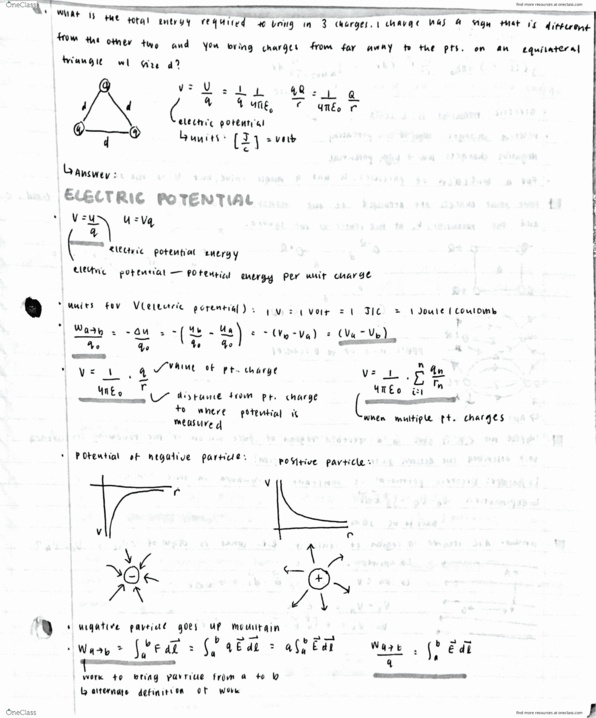 OneClass
find more resources at oneclass.com
• What is the total energy required to bring in 3 charges. 1 charge has a sign that is different
from the other two and you bring charges from far away to the pts. on an equilateral
triangle w/ size d?
d d
d
V = U/q = 1/q 1/4πε₀ qQ/r = 1/4πε₀ Q/r
electric potential
↳ units: [J/C] = volt
↳ Answer:
ELECTRIC POTENTIAL
• V = U/q U = Vq
electric potential energy
electric potential — potential energy per unit charge
• units for V(electric potential): 1 V = 1 volt = 1 J/C = 1 Joule/coulomb
• Wa→b/q₀ = -ΔU/q₀ = -(Ub/q₀ - Ua/q₀) = -(Vb - Va) = (Va - Vb)
• V = 1/4πε₀ · q/r value of pt. charge
distance from pt. charge
to where potential is
measured
V = 1/4πε₀ · Σ n i=1 qn/rn
when multiple pt. charges
• Potential of negative particle: positive particle:
r
V
V
r
−
+
• negative particle goes up mountain
• Wa→b = ∫ₐᵇ F dl = ∫ₐᵇ qE⃗ dl⃗ = q∫ₐᵇ E⃗ dl⃗ Wa→b/q = ∫ₐᵇ E⃗ dl⃗
work to bring particle from a to b
↳ alternate definition of work
OneClass
find more resources at oneclass.com